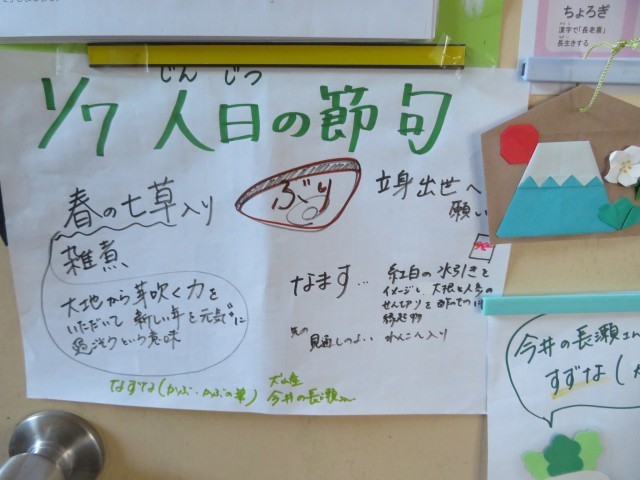 ちょろぎ
漢字で「長老喜」
長生きする
じん じつ
1/7 人日の節句
春の七草入り
雑煮
大地から芽吹く力を
いただいて 新しい年を元気に
過ごそうという意味
ぶり
立身出世へ
願い
なます…
紅白の水引きを
イメージし 大根と人参の
せん切りを
縁起物
先の
見通しのよい れんこん入り
なずな(かぶ・かぶの葉)
犬山産
今井の長瀬さん
今井の長瀬さん
すずな(